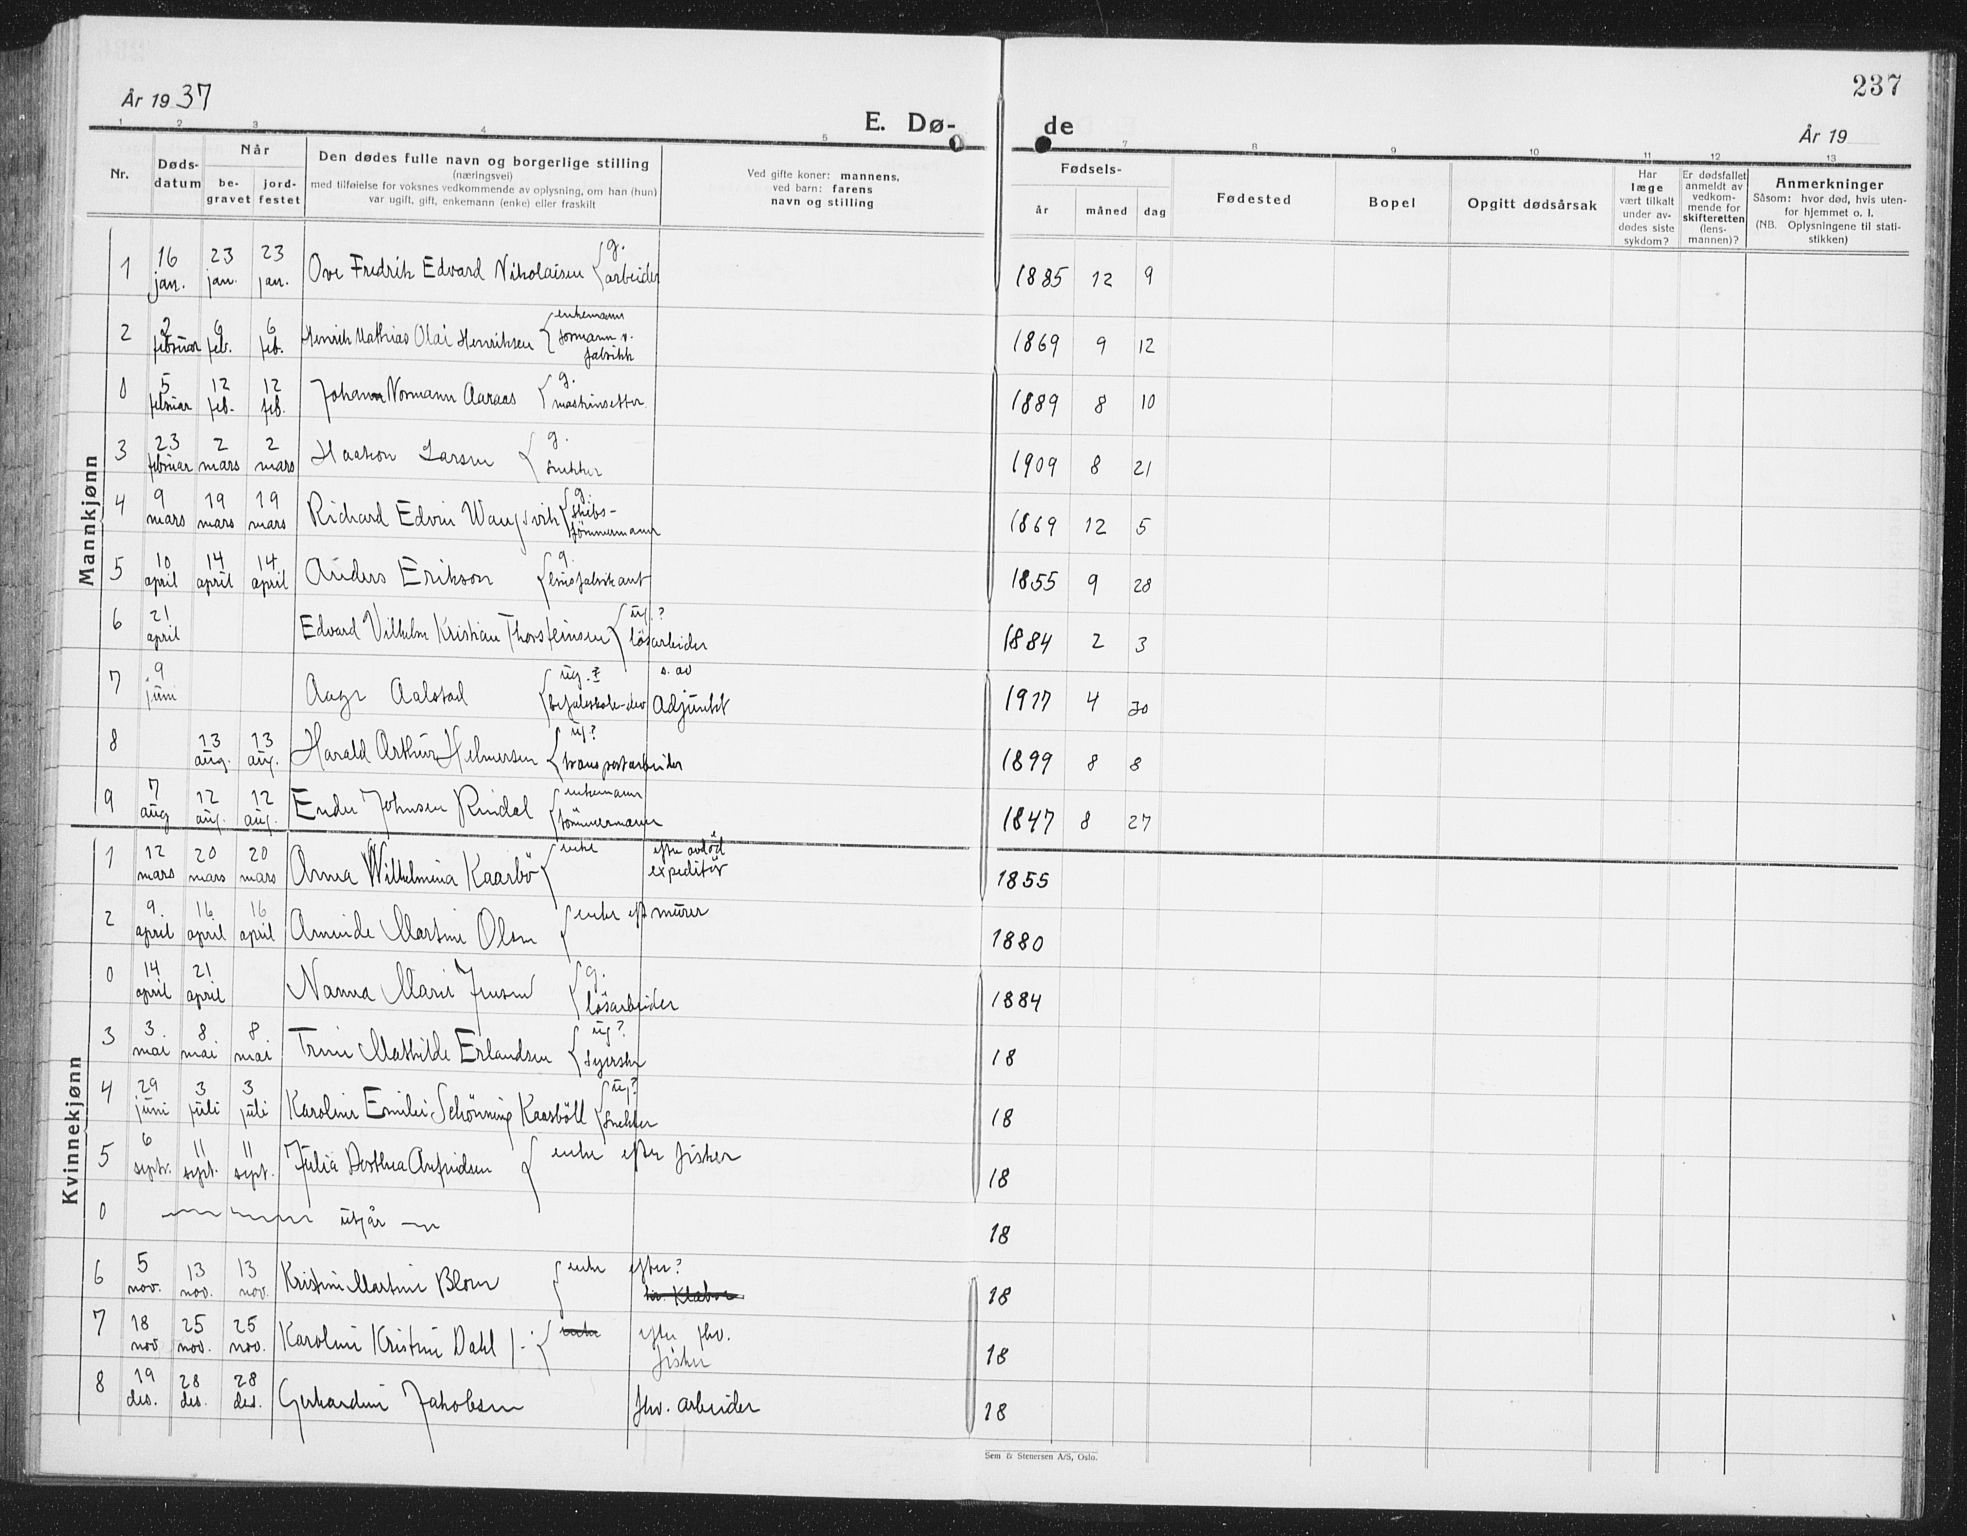 År 1937
E. Dø-
de
237
År 19
1 2 3 4 5 7 8 9 10 11 12 13
Nr.
Døds-
datum
Når
be-
gravet
jord-
festet
Den dødes fulle navn og borgerlige stilling
(næringsvei)
med tilføielse for voksnes vedkommende av oplysning, om han (hun)
var ugift, gift, enkemann (enke) eller fraskilt
Ved gifte koner: mannens,
ved barn: farens
navn og stilling
Fødsels-
år måned dag
Fødested
Bopel
Opgitt dødsårsak
Har
læge
vært tilkalt
under av-
dødes siste
sykdom?
Er dødsfallet
anmeldt av
vedkom-
mende for
skifteretten
(lens-
mannen)?
Anmerkninger
Såsom: hvor død, hvis uten-
for hjemmet o. l.
(NB. Oplysningene til stati-
stikken)
Mannkjønn
1 16 jan. 23 jan. 23 jan. Ove Fredrik Edvard Nikolaisen g. arbeider 1885 12 9
2 2 februar 6 feb. 6 feb. Henrik Mathias Olai Henriksen enkemann formann v. fabrikk 1869 9 12
0 5 februar 12 feb. 12 feb. Johann Normann Aaraas g. maskinsetter 1889 8 10
3 23 februar 2 mars 2 mars Haakon Larsen g. snekker 1909 8 21
4 9 mars 19 mars 19 mars Richard Edvin Wangsvik g. skibs- tömmermann 1869 12 5
5 10 april 14 april 14 april Anders Erikson g. 1855 9 28
6 21 april Edvard Vilhelm Kristian Thorsteinsen ug.? lösarbeider 1884 2 3
7 9 juni Aage Aalstad ug.? befalsskole-elev s. av Adjunkt 1917 4 30
8 13 aug. 13 aug. Harald Arthur Helmersen ug? transportarbeider 1899 8 8
9 7 aug 12 aug. 12 aug. Ender Johnsen Rindal enkemann tömmermann 1847 8 27
Kvinnekjønn
1 12 mars 20 mars 20 mars Anna Wilhelmina Kaarbö enke efter avdöd expeditör 1855
2 9. april 16 april 16 april Aminde Martine Olsen enke eft murer 1880
0 14 april 21 april Nanna Marie Jensen g. lösarbeider 1884
3 3. mai 8 mai 8. mai Trine Mathilde Erlandsen ug? syerske 18
4 29 juni 3 juli 3 juli Karoline Emilie Schönning Kaarböll ug? snekker 18
5 6 septr. 11 sept. 11 sept. Julia Dorthea Arfridsen enke efter fisker 18
0 utgår 18
6 5 nov. 13 nov. 13 nov. Kristine Martine Blom enke efter? 18
7 18 nov 25 nov. 25 nov. Karoline Kristine Dahl enke efter fhv. fisker 18
8 19 des. 28 des. 28 des. Gerhardine Jakobsen fhv. arbeider 18
Sem & Stenersen A/S, Oslo.